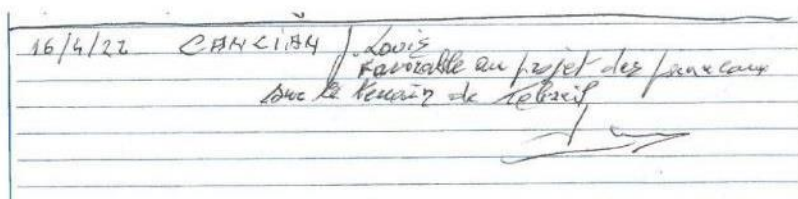 16/4/22 CANCIAN J. Louis
Favorable au projet des panneaux
sur le terrain de